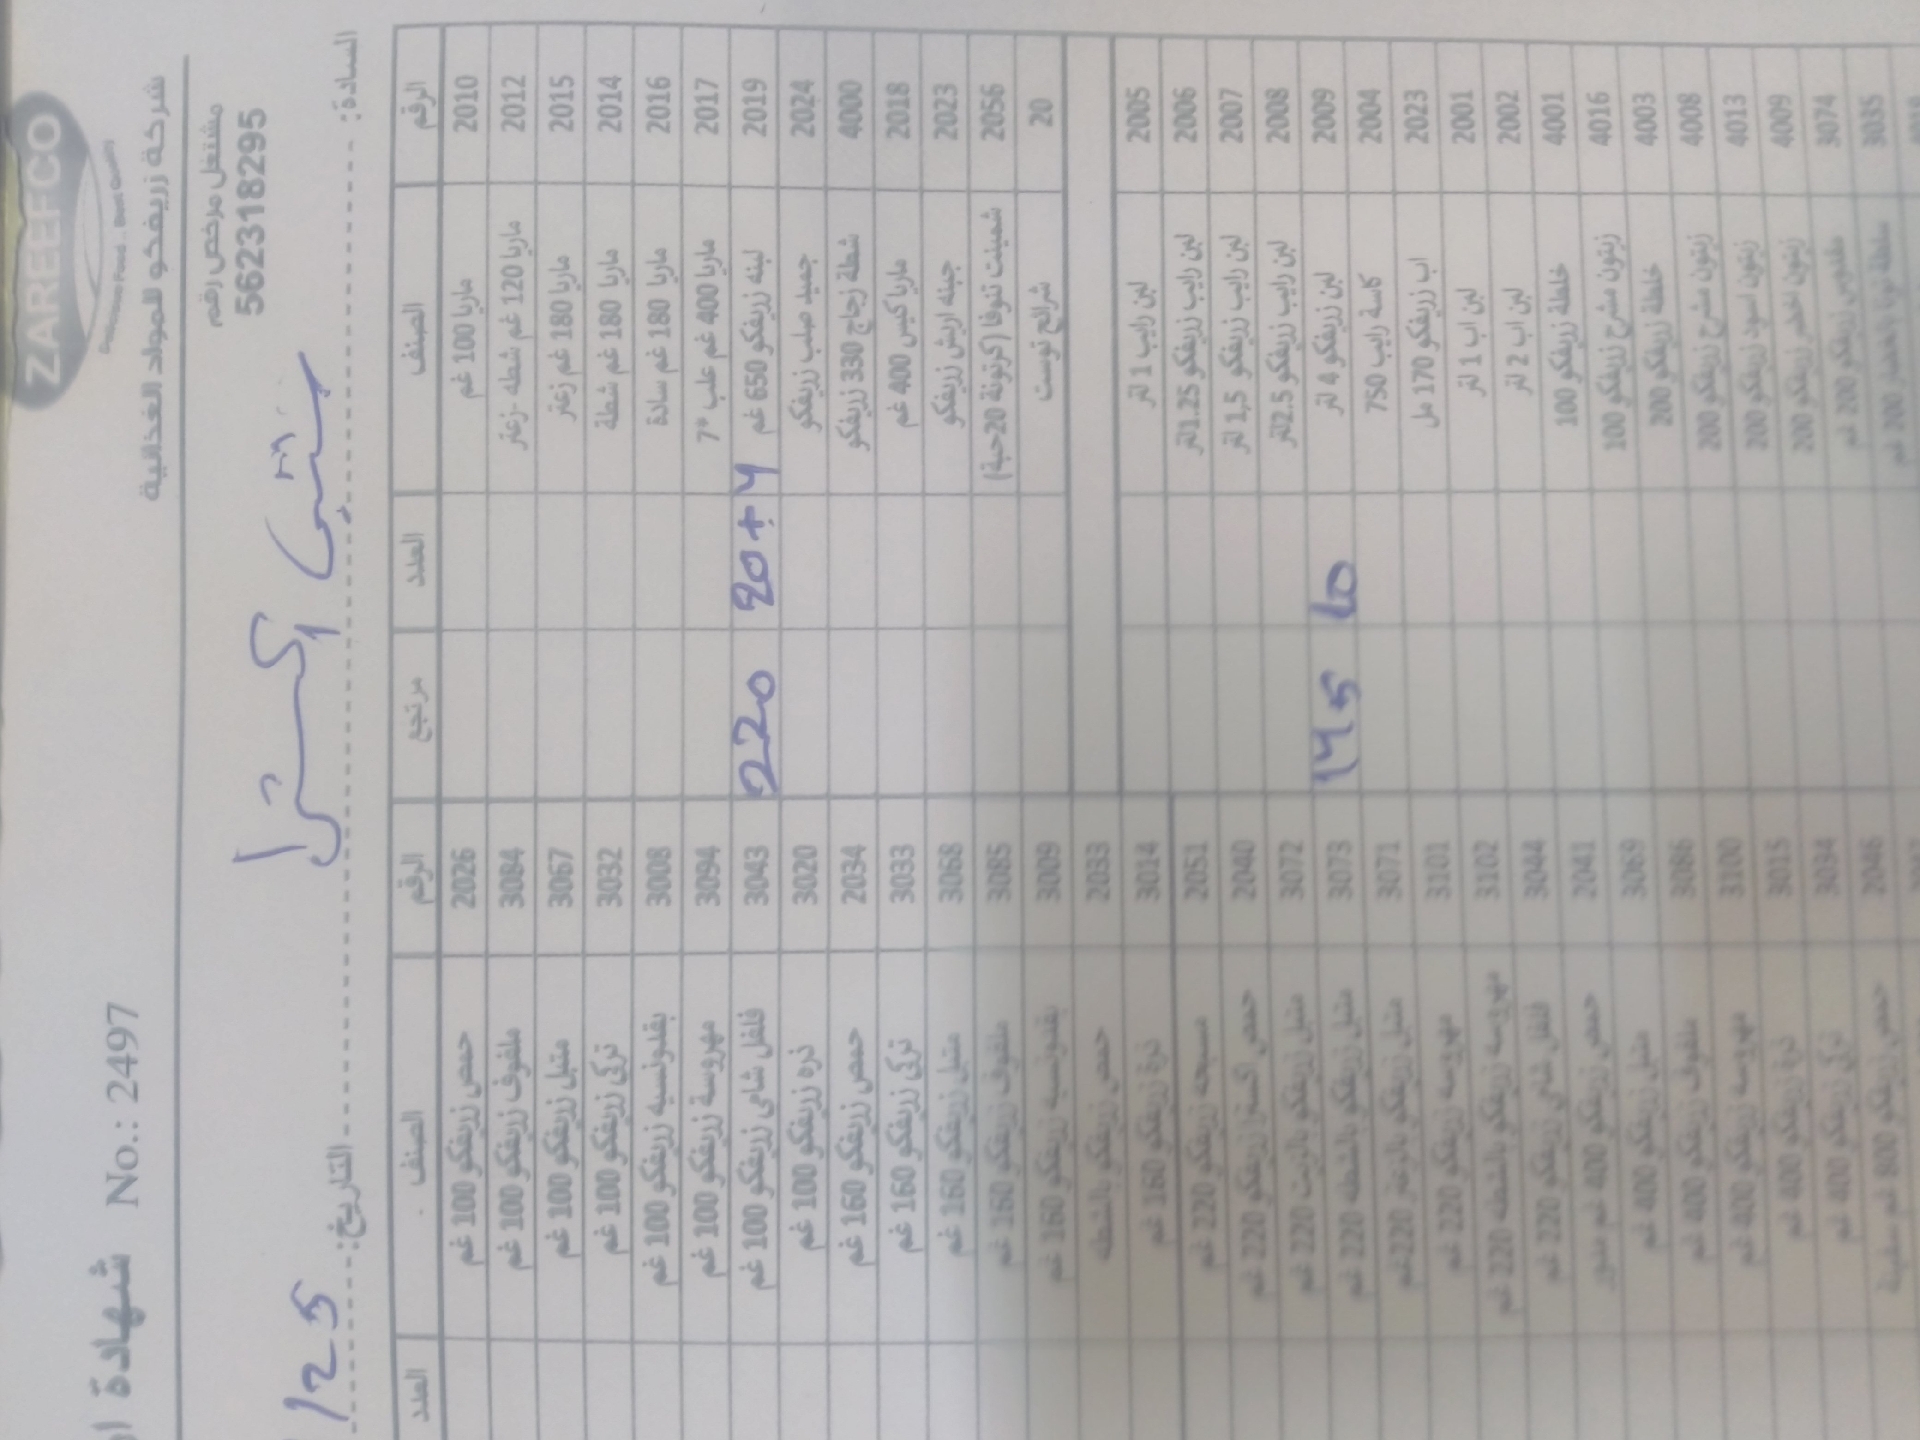 ZAREEFCO
شركة زريفكو للمواد الغذائية
مشتغل مرخص رقم
562318295
شهادة
No.: 2497
السادة:
التاريخ:
125
الرقم الصنف العدد مرتجع الرقم الصنف العدد
2010 ماريا 100 غم 2026 حمص زريفكو 100 غم
2012 ماريا 120 غم شطه -زعتر 3084 ملفوف زريفكو 100 غم
2015 ماريا 180 غم زعتر 3067 متبل زريفكو 100 غم
2014 ماريا 180 غم شطة 3032 تركي زريفكو 100 غم
2016 ماريا 180 غم سادة 3008 بقدونسيه زريفكو 100 غم
2017 ماريا 400 غم علب *7 3094 مهروسة زريفكو 100 غم
2019 لبنه زريفكو 650 غم 20+4 220 3043 فلفل شامي زريفكو 100 غم
2024 جميد صلب زريفكو 3020 ذره زريفكو 100 غم
4000 شطة زجاج 330 زريفكو 2034 حمص زريفكو 160 غم
2018 ماريا كيس 400 غم 3033 تركي زريفكو 160 غم
2023 جبنه اريش زريفكو 3068 متبل زريفكو 160 غم
2056 شمينت تنوفا (كرتونة 20حبة) 3085 ملفوف زريفكو 160 غم
20 شرائح توست 3009 بقدونسيه زريفكو 160 غم
2033 حمص زريفكو بالشطه
2005 لبن رايب 1 لتر 3014 ذرة زريفكو 160 غم
2006 لبن رايب زريفكو 1.25لتر 2051 مسبحه زريفكو 220 غم
2007 لبن رايب زريفكو 1,5 لتر 2040 حمص اكسترا زريفكو 220 غم
2008 لبن رايب زريفكو 2.5لتر 3072 متبل زريفكو بالزيت 220 غم
2009 لبن زريفكو 4 لتر 10 145 3073 متبل زريفكو بالشطه 220 غم
2004 كاسة رايب 750 3071 متبل زريفكو بالزعتر 220غم
2023 اب زريفكو 170 مل 3101 مهروسه زريفكو 220 غم
2001 لبن اب 1 لتر 3102 مهروسه زريفكو بالشطه 220 غم
2002 لبن اب 2 لتر 3044 فلفل شامي زريفكو 220 غم
4001 خلطة زريفكو 100 2041 حمص زريفكو 400 غم
4016 زيتون مشرح زريفكو 100 3069 متبل زريفكو 400 غم
4003 خلطة زريفكو 200 3086 ملفوف زريفكو 400 غم
4008 زيتون مشرح زريفكو 200 3100 مهروسه زريفكو 400 غم
4013 زيتون اسود زريفكو 200 3015 ذرة زريفكو 400 غم
4009 زيتون اخضر زريفكو 200 3034 تركي زريفكو 400 غم
3074 زريفكو 200 غم 2046 حمص زريفكو 800 غم
3035 200 غم